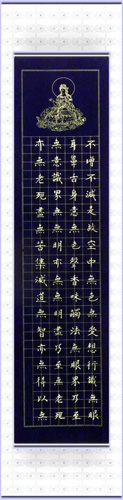 不增不減是故空中無色無受想行識無眼
耳鼻舌身意無色聲香味觸法無眼界乃至
無意識界無無明亦無無明盡乃至無老死
亦無老死盡無苦集滅道無智亦無得以無